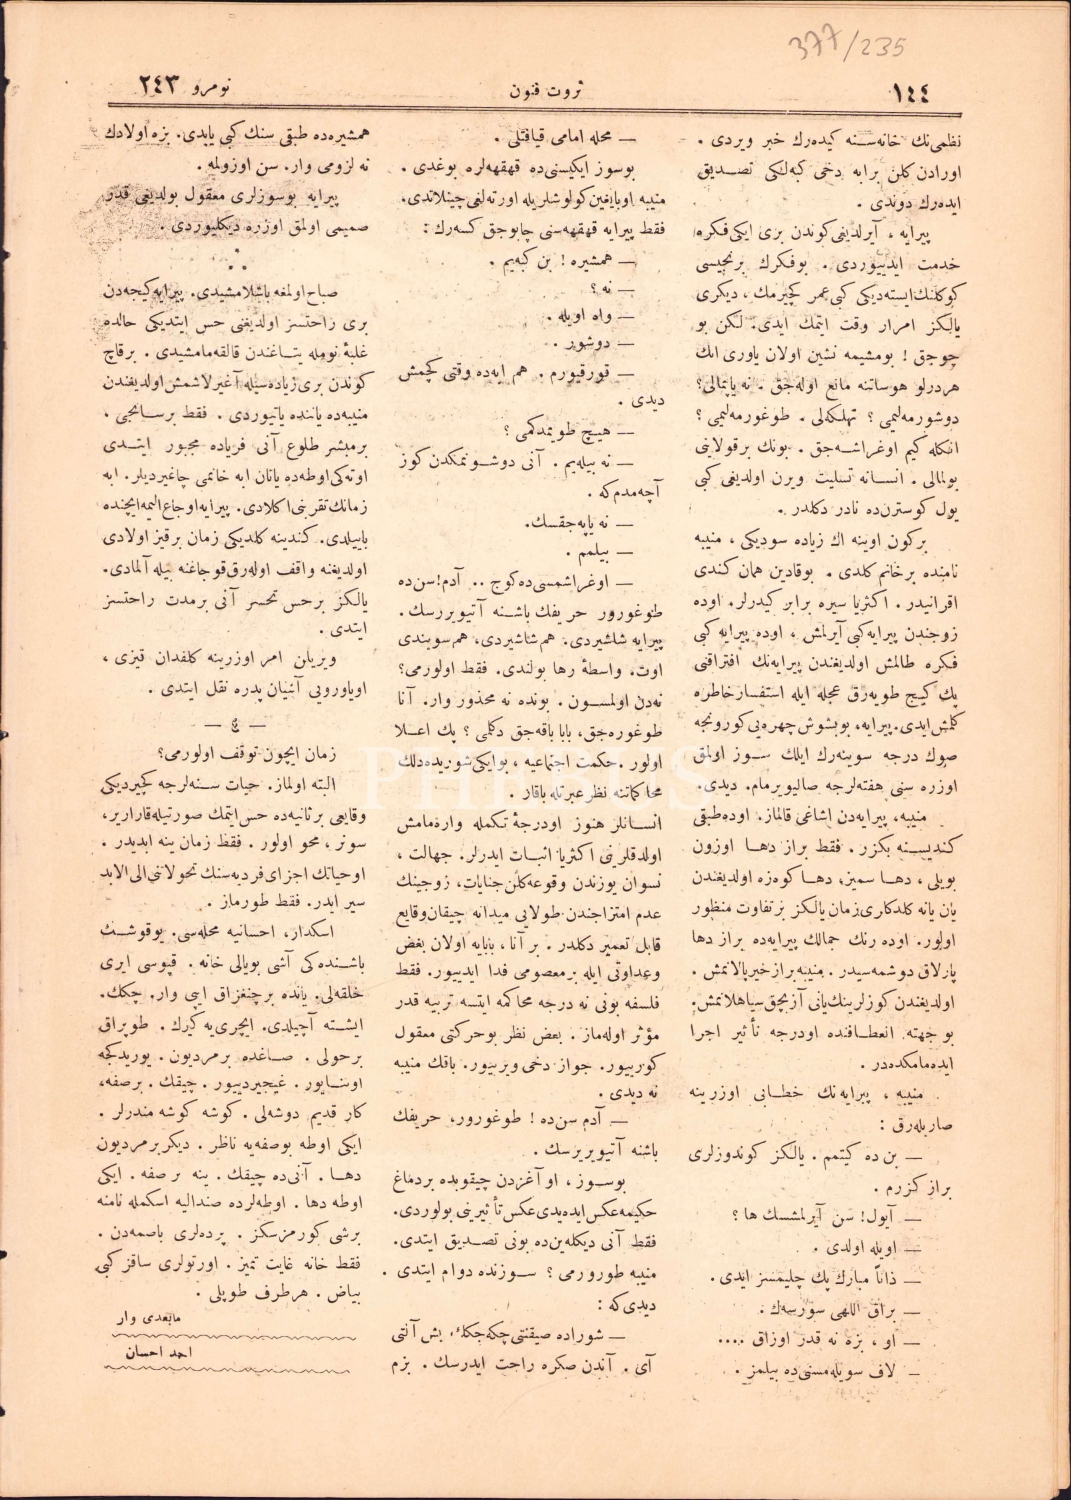 377/235
١٤٤
ثروت فنون
نومرو ٢٤٣
نظمی‌نك خانه‌سنه كیده‌رك خبر ویردی .
اورادن كلن برابه دخی كبه‌لكی تصدیق
ایده‌رك دوندی .
پیرایه ، آیرلدیغی كوندن بری ایكی فكره
خدمت ایدییوردی . بو فكرك برنجیسی
كوكلنك ایسته‌دیكی كبی عمر كچیرمك ، دیكری
یالكز امرار وقت ایتمك ایدی. لكن بو
چوجق ! بومشیمه نشین اولان یاوری انك
هردرلو هوساتنه مانع اوله‌جق . نه یاپمالی؟
دوشورمه‌لیمی ؟ تهلكه‌لی . طوغورمه‌لیمی ؟
انكله كیم اوغراشه‌جق . بونك برقولاینی
بولمالی . انسانه تسلیت ویرن اولدیغی كبی
یول كوسترن‌ده نادر دكلدر .
بركون اوینه اك زیاده سودیكی ، منیبه
نامنده برخانم كلدی . بوقادین همان كندی
اقرانیدر . اكثریا سیره برابر كیدرلر. اوده
زوجندن پیرایه‌كبی آیرلمش ، اوده پیرایه كبی
فكره طالمش اولدیغندن پیرایه‌نك افتراقنی
پك كیج طویه‌رق عجله ایله استفسار خاطره
كلمش ایدی. پیرایه، بوبشوش چهره‌یی كورونجه
صوك درجه سوینه‌رك ایلك سوز اولمق
اوزره سنی هفته‌لرجه صالیویرمام. دیدی.
منیبه، پیرایه‌دن اشاغی قالماز. اوده طبقی
كندیسنه بكزر . فقط براز دها اوزون
بویلی ، دها سمیز، دها كوده اولدیغندن
یان یانه كلدكلری زمان یالكز بر تفاوت منظور
اولور. اوده رنك جمالك پیرایه‌ده براز دها
پارلاق دوشمه‌سیدر . منیبه براز خیرپالانمش .
اولدیغندن كوزلرینك یانی آزبچق سیاهلانمش.
بو جهته انعطافنده اودرجه تأثیر اجرا
ایده‌مامكده‌در .
منیبه ، پیرایه‌نك خطابی اوزرینه
صاریله‌رق :
— بن ده كیتمم . یالكز كوندوزلری
براز كزرم .
— آیول! سن آیرلمشسك ها ؟
— اویله اولدی .
— ذاتاً مبارك پك چلیمسز ایدی .
— براق اللهی سورسه‌ك .
— او ، بزه نه قدر اوزاق ....
— لاف سویله‌مسنی‌ده بیلمز .
— محله امامی قیافتلی .
بوسوز ایكیسنی‌ده قهقهه‌لره بوغدی .
منیبه اوبایغین كولوشلریله اورته‌لغی چینلاتدی.
فقط پیرایه قهقهه‌سنی چابوجق كسه‌رك :
— همشیره ! بن كبه‌یم .
— نه ؟
— واه اویله .
— دوشور .
— قورقیورم . هم ایه‌ده وقتی كچمش
دیدی .
— هیچ طویمدكمی ؟
— نه بیله‌یم . آنی دوشونمكدن كوز
آچه‌مدم‌كه .
— نه یاپه‌جقسك.
— بیلمم .
— اوغراشمسی‌ده كوج .. آدم! سن‌ده
طوغورور حریفك باشنه آتیویررسك.
پیرایه شاشیردی. هم شاشیردی، هم سویندی
اوت. واسطۀ رها بولندی. فقط اولورمی؟
نه‌دن اولمسون . بونده نه محذور وار. آنا
طوغوره‌جق، بابا باقه‌جق دكلی ؟ پك اعلا
اولور . حكمت اجتماعیه ، بو ایكی شوریده‌دلك
محاكماتنه نظر عبرتله باقار .
انسانلر هنوز اودرجۀ تكمله وارمامش
اولدقلرینی اكثریا اثبات ایدرلر. جهالت ،
نسوان یوزندن وقوعه كلن جنایات، زوجینك
عدم امتزاجندن طولایی میدانه چیقان وقایع
قابل تعمیر دكلدر . بر آنا ، بابایه اولان بغض
وعداوتی ایله برمعصومی فدا ایدییور. فقط
فلسفه بونی نه درجه محاكمه ایتسه تربیه قدر
مؤثر اوله‌ماز . بعض نظر بوحركتی معقول
كورییور. جواز دخی ویرییور. باقك منیبه
نه دیدی .
— آدم سن‌ده ! طوغورور، حریفك
باشنه آتیویررسك .
بوسوز ، او آغزدن چیقوبده بردماغ
حكیمه عكس ایده‌یدی عكس تأثیرینی بولوردی.
فقط آنی دیكله‌ین‌ده بونی تصدیق ایتدی.
منیبه طورورمی ؟ سوزنده دوام ایتدی .
دیدی‌كه :
— شوراده صیقنتی چكه‌جكك، بش آلتی
آی . آندن صكره راحت ایدرسك . بزم
همشیره‌ده طبقی سنك كبی یاپدی. بزه اولادك
نه لزومی وار. سن اوزولمه .
پیرایه بوسوزلری معقول بولدیغی قدر
صمیمی اولمق اوزره دیكلیوردی .
صباح اولمغه باشلامشیدی. پیرایه كیجه‌دن
بری راحتسز اولدیغنی حس ایتدیكی حالده
غلبۀ نومله یتاغندن قالقه‌مامشیدی . برقاچ
كوندن بری زیاده‌سیله آغیرلاشمش اولدیغندن
منیبه‌ده یاننده یاتیوردی . فقط برسانجی .
برمبشر طلوع آنی فریاده مجبور ایتدی
اوته‌كی اوطه‌ده یاتان ابه خانمی چاغیردیلر. ابه
زمانك تقربنی اكلادی. پیرایه اوجاع الیمه ایچنده
باییلدی. كندینه كلدیكی زمان برقیز اولادی
اولدیغنه واقف اوله‌رق قوجاغنه بیله آلمادی.
یالكز برحس تحسر آنی برمدت راحتسز
ایتدی .
ویریلن امر اوزرینه كلفدان قیزی ،
اویاورویی آشیان پدره نقل ایتدی .
— ٤ —
زمان ایچون توقف اولورمی؟
البته اولماز. حیات سنه‌لرجه كچیردیكی
وقایعی برثانیه‌ده حس ایتمك صورتیله قارارير،
سونر ، محو اولور . فقط زمان ینه ابدیدر .
اوحیاتك اجزای فردیه‌سنك تحولاتنی الی الابد
سیر ایدر. فقط طورماز .
اسكدار، احسانیه محله‌سی. یوقوشك
باشنده‌كی آشی بویالی خانه . قپوسی ایری
خلقه‌لی. یانده برچنغراق ایپی وار. چكك.
ایشته آچیلدی. ایچری‌یه كیرك . طوپراق
برحولی . صاغده برمردیون . یوریدكجه
اوینایور. غیجیردییور . چیقك . برصفه،
كار قدیم دوشه‌لی . كوشه كوشه مندرلر .
ایكی اوطه بوصفه‌یه ناظر . دیكر برمردیون
دها . آنی‌ده چیقك . ینه برصفه . ایكی
اوطه دها . اوطه‌لرده صندالیه اسكمله نامنه
برشی كورمزسكز . پرده‌لری باصمه‌دن .
فقط خانه غایت تمیز . اورتولری ساقز كبی
بیاض . هر طرف طوپلی .
مابعدی وار
احمد احسان
PHEBUS